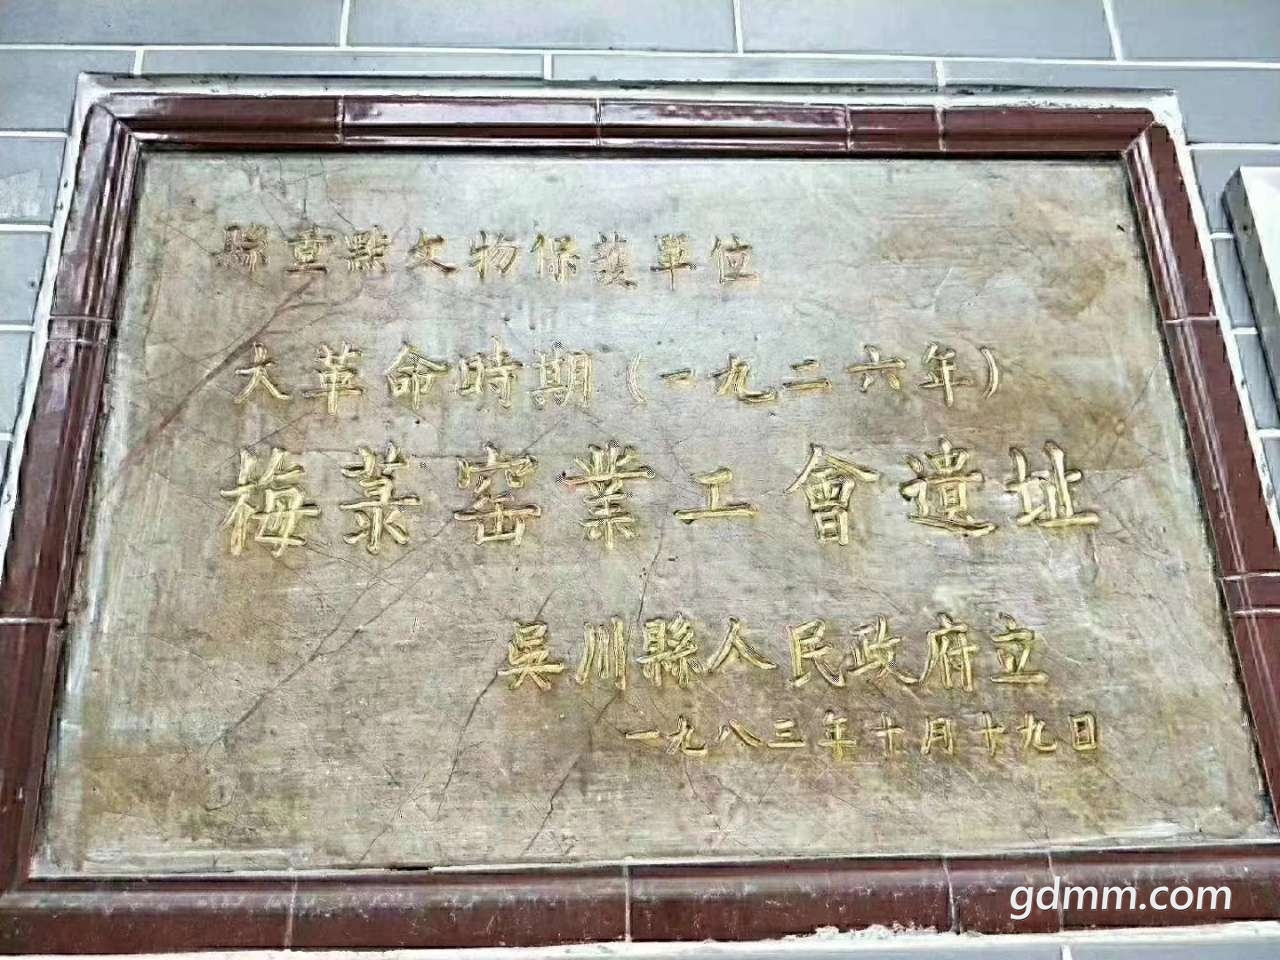 縣重點文物保護單位
大革命時期(一九二六年)
梅菉窑業工會遺址
吳川縣人民政府立
一九八三年十月十九日
gdmm.com